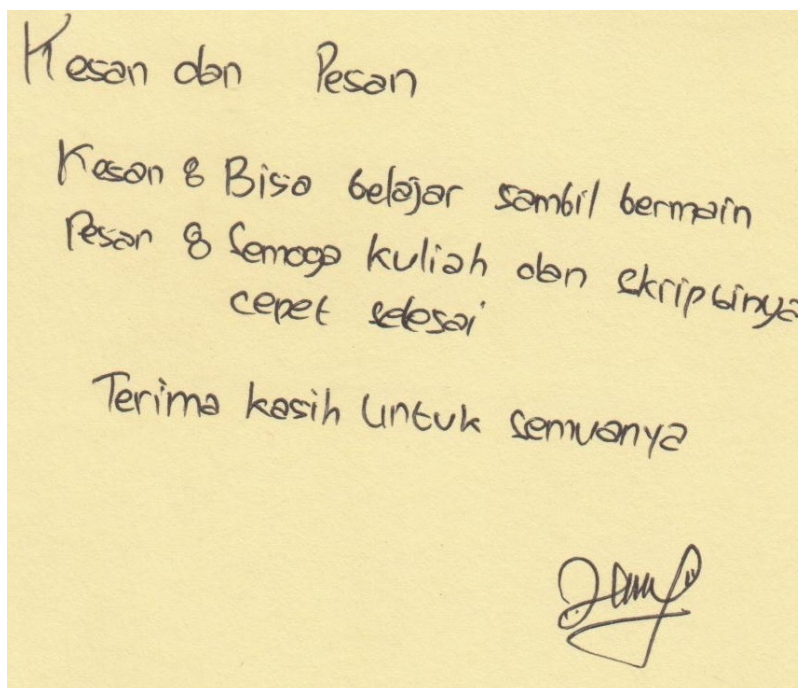 Kesan dan Pesan
Kesan : Bisa belajar sambil bermain
Pesan : Semoga kuliah dan skripsinya
cepet selesai
Terima kasih untuk semuanya